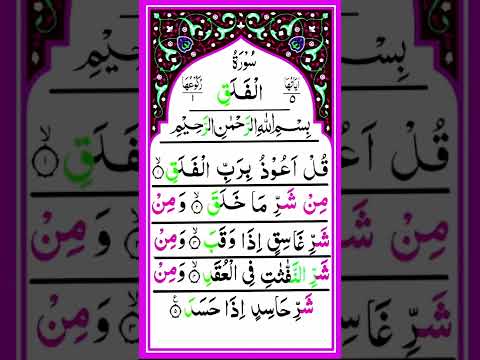 سُوْرَةُ
اٰيَاتُهَا ٥ الْفَلَقِ رُكُوْعُهَا ١
بِسْمِ اللّٰهِ الرَّحْمٰنِ الرَّحِيْمِ
قُلْ اَعُوْذُ بِرَبِّ الْفَلَقِ ۙ﴿١﴾
مِنْ شَرِّ مَا خَلَقَ ۙ﴿٢﴾ وَمِنْ
شَرِّ غَاسِقٍ اِذَا وَقَبَ ۙ﴿٣﴾ وَمِنْ
شَرِّ النَّفّٰثٰتِ فِى الْعُقَدِ ۙ﴿٤﴾ وَمِنْ
شَرِّ حَاسِدٍ اِذَا حَسَدَ ﴿٥﴾